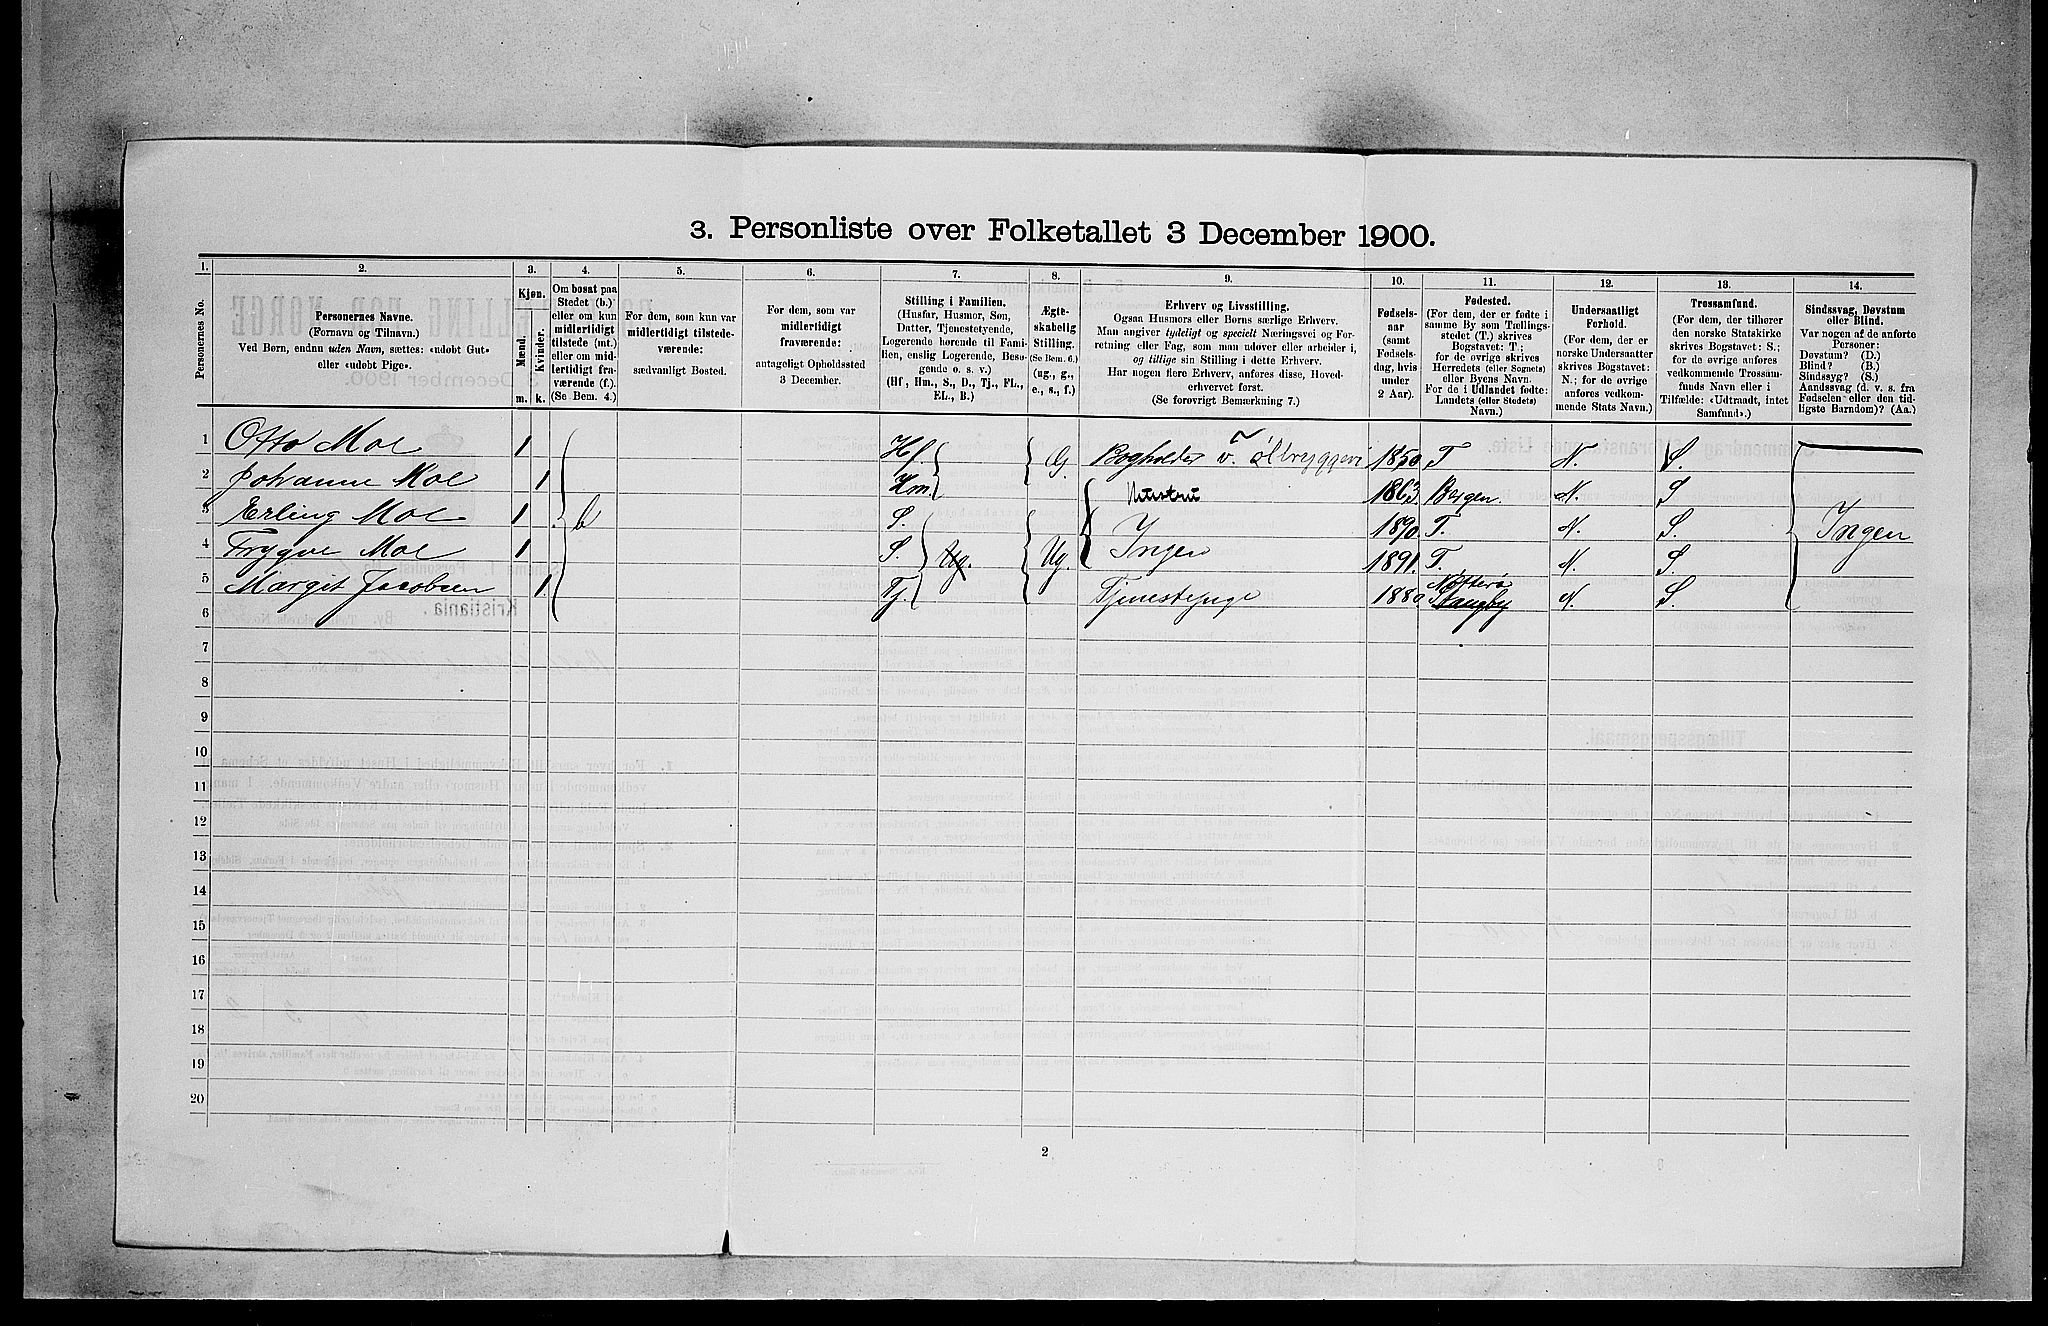 3. Personliste over Folketallet 3 December 1900.
1. 2. 3. 4. 5. 6. 7. 8. 9. 10. 11. 12. 13. 14.
Personernes No.
Personernes Navne.
(Fornavn og Tilnavn.)
Ved Børn, endnu uden Navn, sættes: «udøbt Gut»
eller «udøbt Pige».
Kjøn.
Mænd.
Kvinder.
m. k.
Om bosat paa
Stedet (b.)
eller om kun
midlertidigt
tilstede (mt.)
eller om mid-
lertidigt fra-
værende (f.).
(Se Bem. 4.)
For dem, som kun var
midlertidigt tilstede-
værende:
sædvanligt Bosted.
For dem, som var
midlertidigt
fraværende:
antageligt Opholdssted
3 December.
Stilling i Familien.
(Husfar, Husmor, Søn,
Datter, Tjenestetyende,
Logerende hørende til Fami-
lien, enslig Logerende, Besø-
gende o. s. v.)
(Hf., Hm., S., D., Tj., FL.,
EL., B.)
Ægte-
skabelig
Stilling.
(Se Bem. 6.)
(ug., g.,
e., s., f.)
Erhverv og Livsstilling.
Ogsaa Husmors eller Børns særlige Erhverv.
Man angiver tydeligt og specielt Næringsvei og For-
retning eller Fag, som man udøver eller arbeider i,
og tillige sin Stilling i dette Erhverv.
Har nogen flere Erhverv, anføres disse, Hoved-
erhvervet først.
(Se forøvrigt Bemærkning 7.)
Fødsels-
aar
(samt
Fødsels-
dag, hvis
under
2 Aar).
Fødested.
(For dem, der er fødte i
samme By som Tællings-
stedet (T.) skrives
Bogstavet: T;
for de øvrige skrives
Herredets (eller Sognets)
eller Byens Navn.
For de i Udlandet fødte:
Landets (eller Stedets)
Navn.)
Undersaatligt
Forhold.
(For dem, der er
norske Undersaatter
skrives Bogstavet:
N.; for de øvrige
anføres vedkom-
mende Stats Navn.)
Trossamfund.
(For dem, der tilhører
den norske Statskirke
skrives Bogstavet: S.;
for de øvrige anføres
vedkommende Trossam-
funds Navn eller i
Tilfælde: «Udtraadt, intet
Samfund».)
Sindssvag, Døvstum
eller Blind.
Var nogen af de anførte
Personer:
Døvstum? (D.)
Blind? (B.)
Sindssyg? (S.)
Aandssvag (d. v. s. fra
Fødselen eller den tid-
ligste Barndom)? (Aa.)
1 Otto Moe 1 Hf. G. Bogholder v. ølbryggeri 1850. T. N. S.
2 Johanne Moe 1 Hm. Hustru 1863. Bergen. N. S
3 Erling Moe 1 b S. Ug. Ingen 1890. T. N. S. Ingen
4 Trygve Moe 1 S. Ug. 1891. T. N. S.
5 Margit Jacobsen 1. Tj. Tjenestepige 1880 Nøtterø Stangby N. S.
6
7
8
9
10
11
12
13
14
15
16
17
18
19
20
2